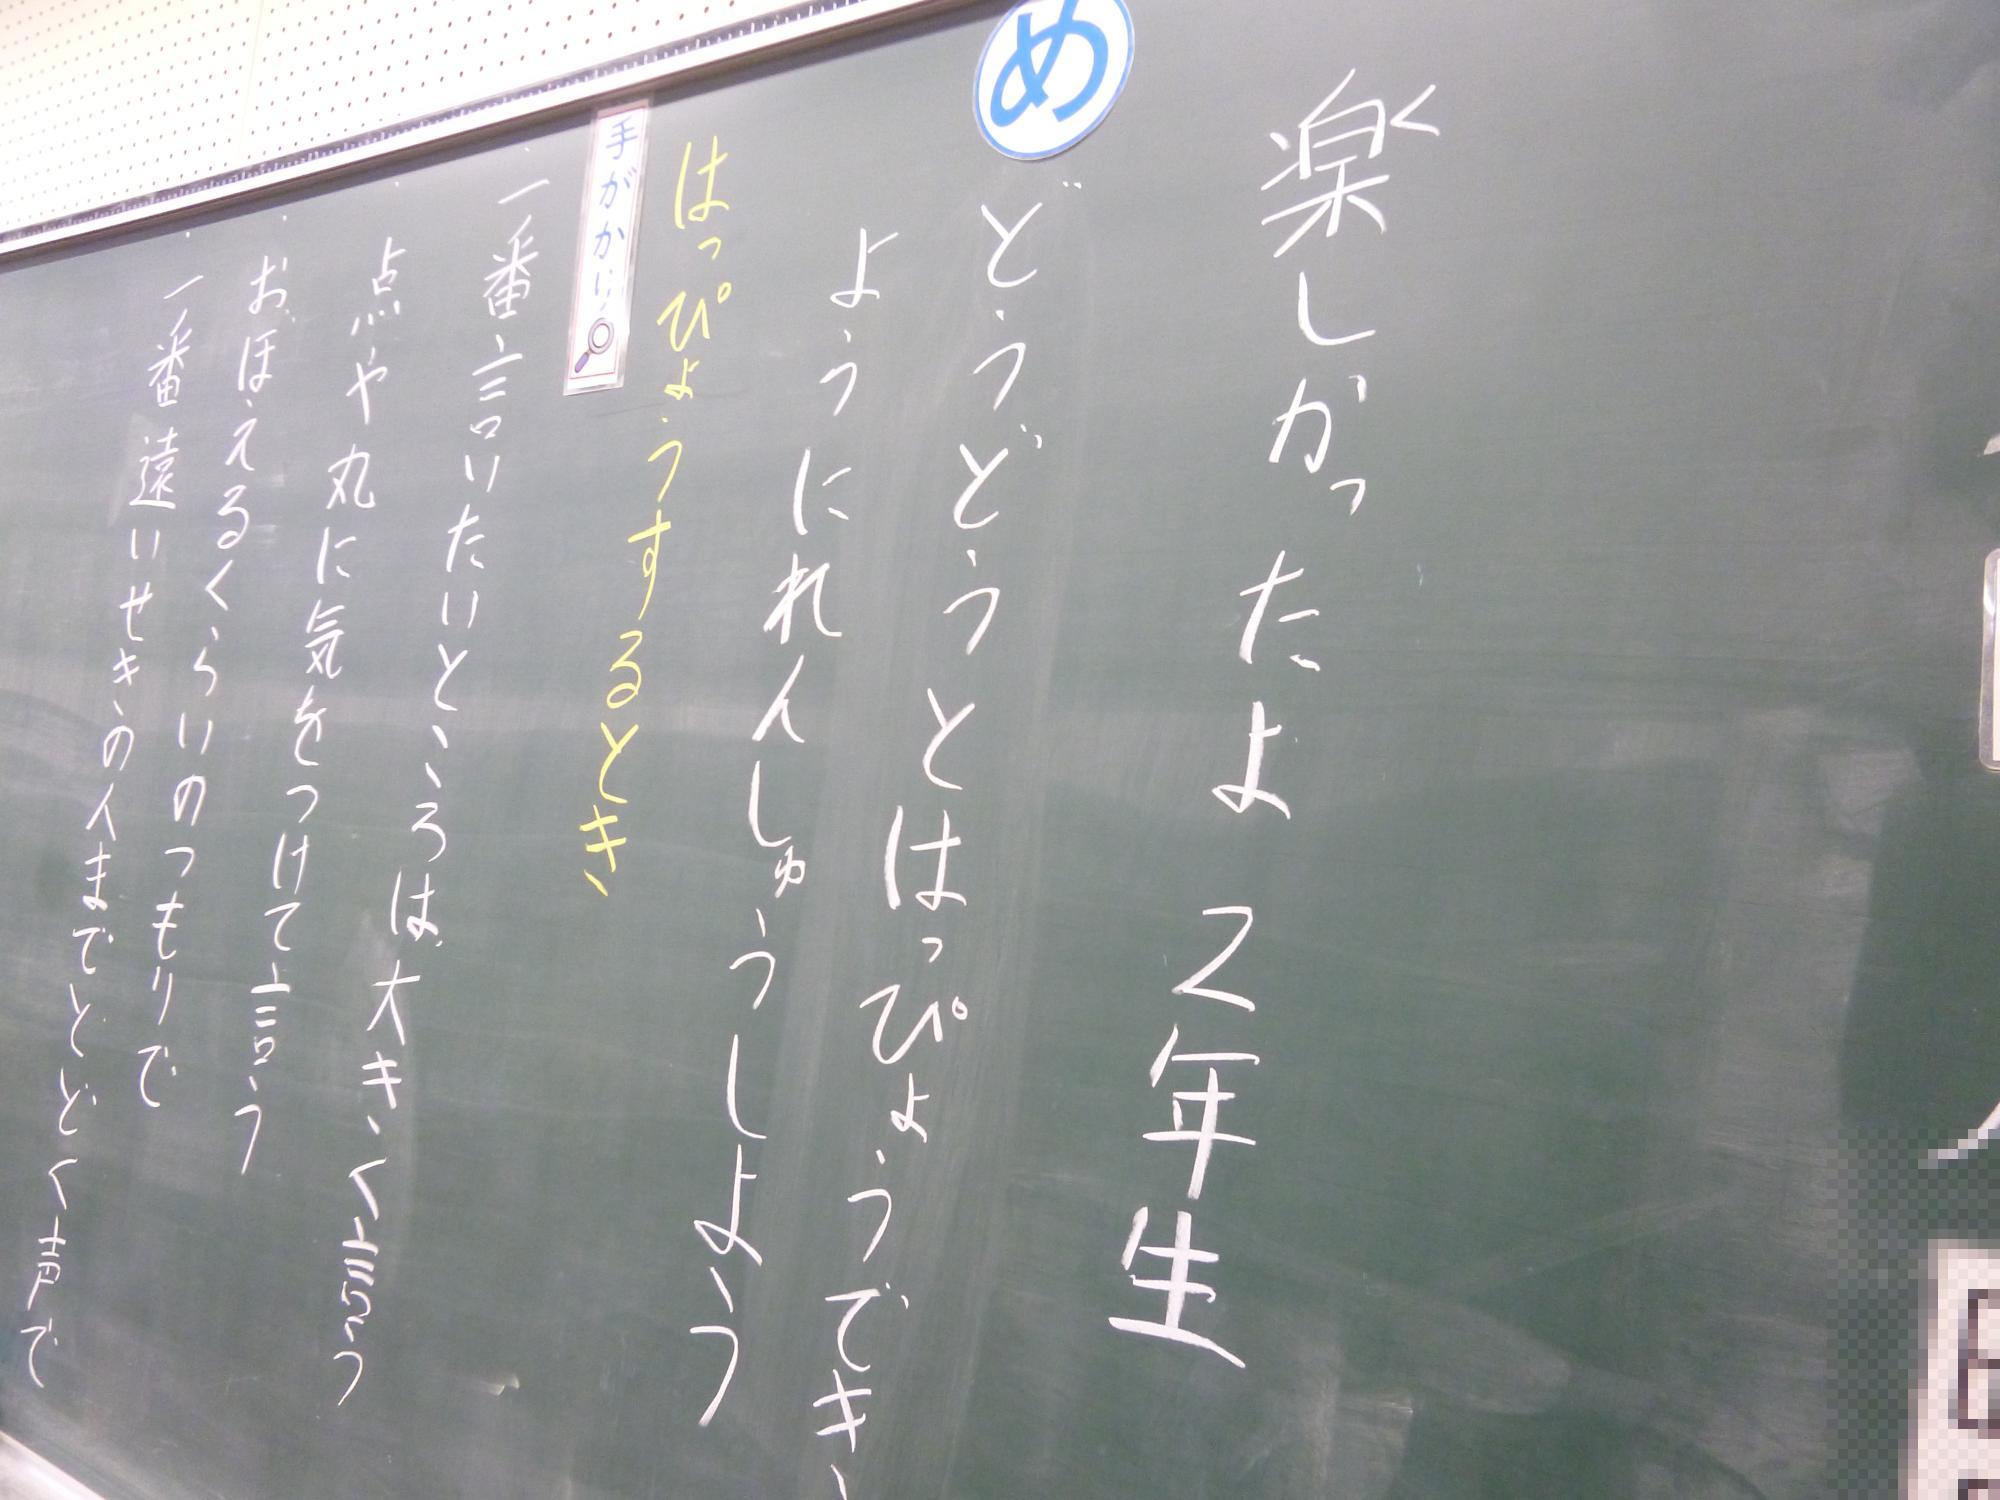 楽しかったよ 2年生
め
どうどうとはっぴょうでき
ようにれんしゅうしよう
はっぴょうするとき
手がかり
・一番言いたいところは、大きく言う
・点や丸に気をつけて言う
・おぼえるくらいのつもりで
・一番遠いせきの人までとどく声で